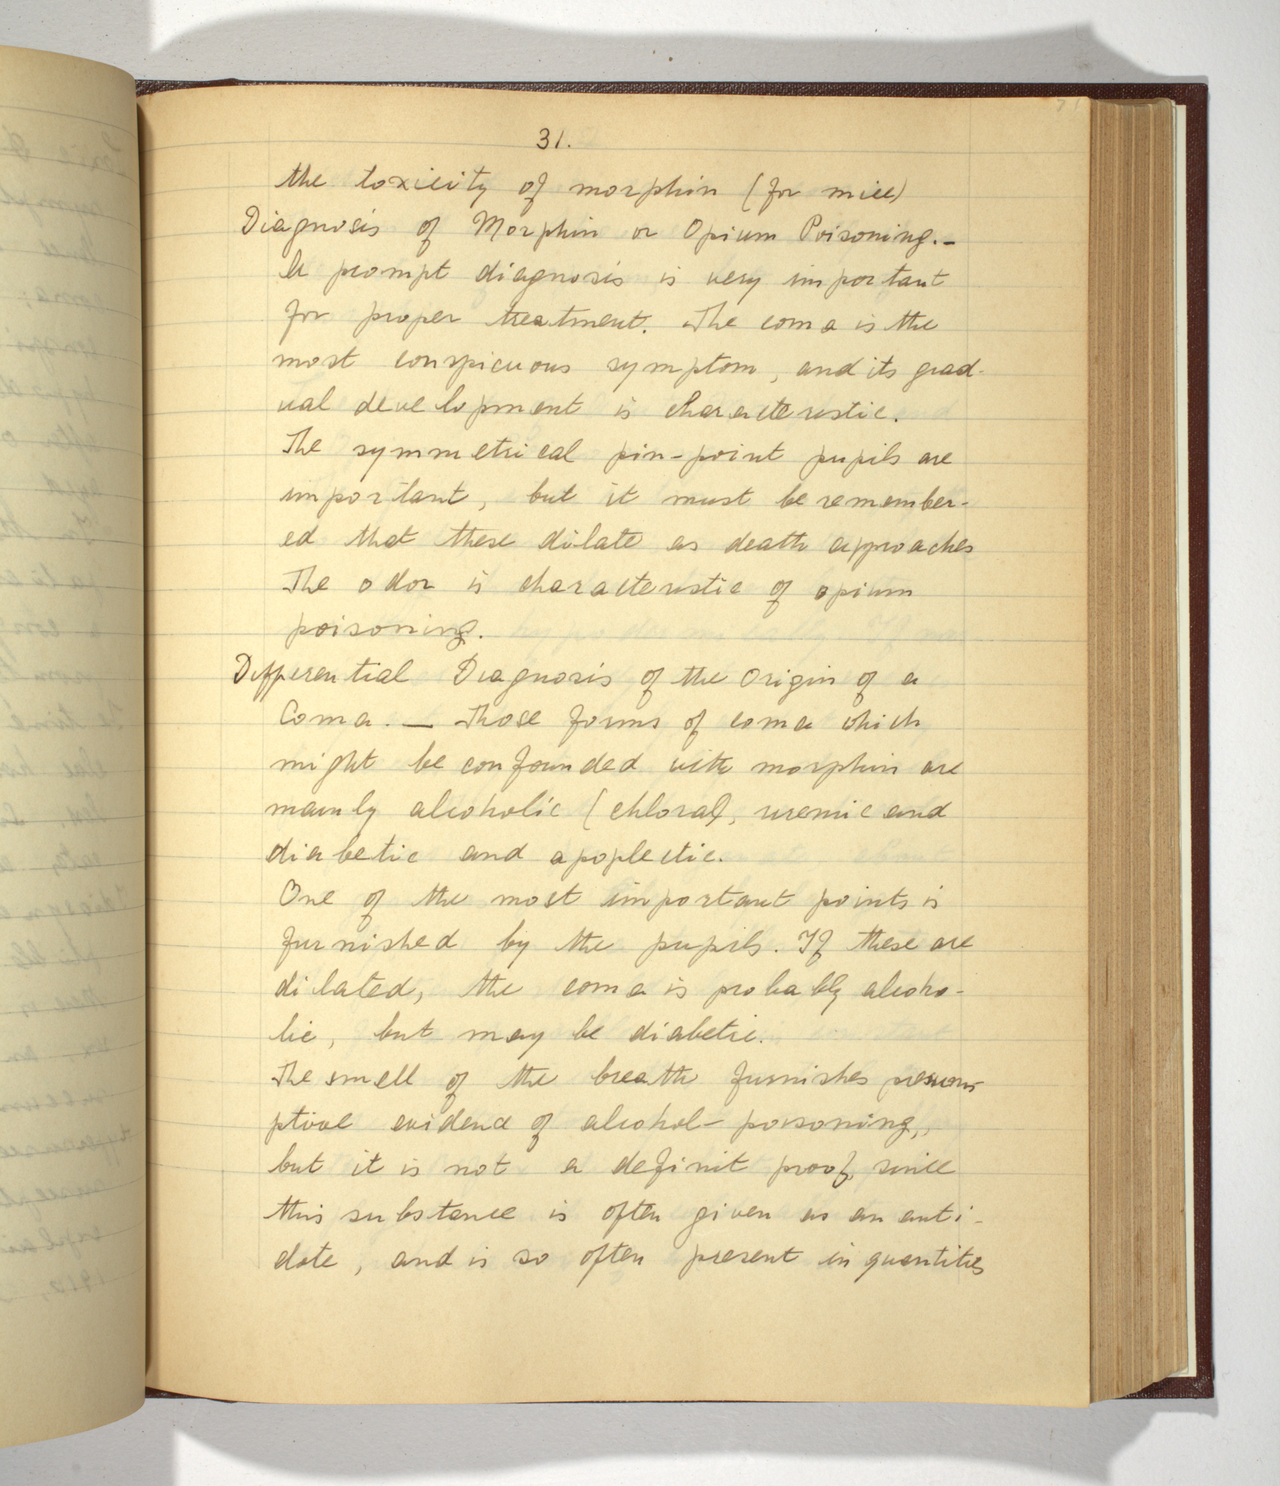 31.
the toxicity of morphin (for mice)
Diagnosis of Morphin or Opium Poisoning.—
A prompt diagnosis is very important
for proper treatment. The coma is the
most conspicuous symptom, and its grad-
ual development is characteristic.
The symmetrical pin-point pupils are
important, but it must be remember-
ed that these dilate as death approaches
The odor is characteristic of opium
poisoning.
Differential Diagnosis of the Origin of a
Coma. — Those forms of coma which
might be confounded with morphin are
mainly alcoholic (chloral), uremic and
diabetic and apoplectic.
One of the most important points is
furnished by the pupils. If these are
dilated, the coma is probably alcoho-
lic, but may be diabetic.
The smell of the breath furnishes presum-
ptive evidence of alcohol- poisoning,
but it is not a definit proof, since
this substance is often given as an anti-
dote, and is so often present in quantities